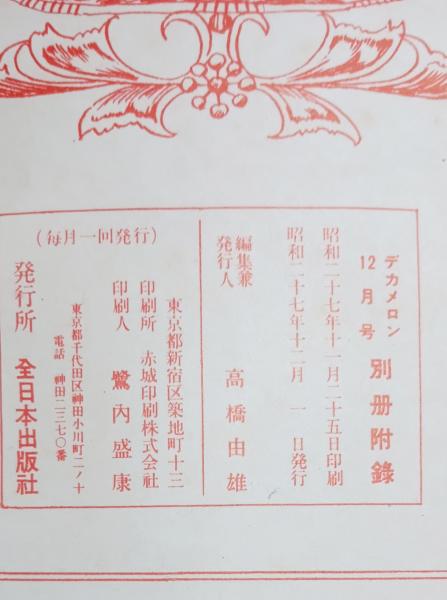 デカメロン
12月号
別册附錄
昭和二十七年十一月二十五日印刷
昭和二十七年十二月 一 日発行
編集兼
発行人
高橋由雄
東京都新宿区築地町十三
印刷所 赤城印刷株式会社
印刷人 鷺内盛康
東京都千代田区神田小川町二ノ十
電話 神田二三七〇番
(每月一回発行)
発行所 全日本出版社